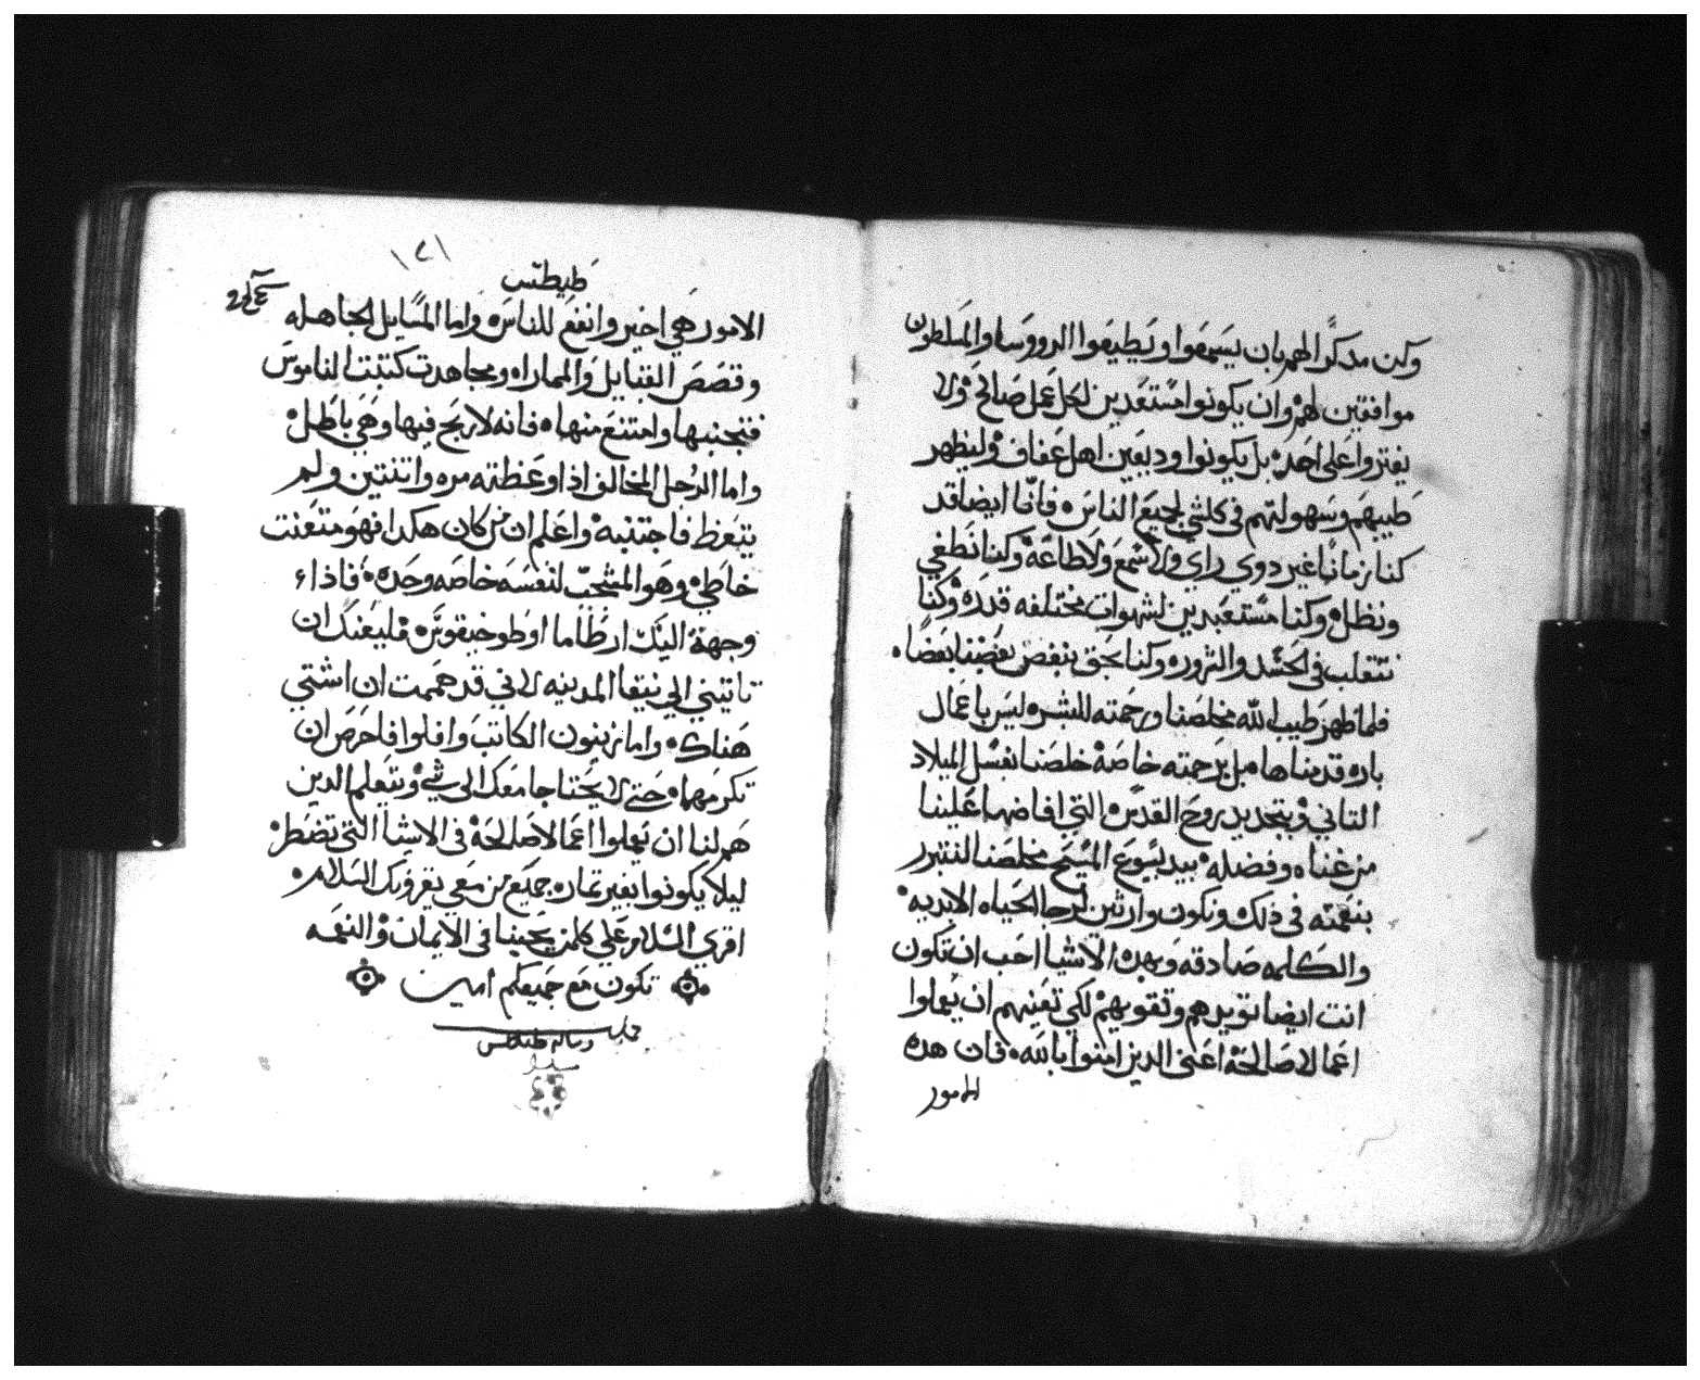 وكن مدكرًا لهم بان يسمعوا ويطيعوا الرووسا والمسلطون
موافقين لهم وان يكونوا مستعدين لكل عمل صالح ولا
يفتروا على احد بل يكونوا وديعين اهل عفاف وليظهر
طيبهم وسهولتهم في كلشي لجميع الناس فانّا ايضا قد
كنا زمانًا غير دوي راي ولا سمع ولا طاعه وكنا نطغي
ونظل وكنا مستعبدين لشهوات مختلفه قدره وكنا
نتقلب في الحسد والشرور وكنا بحق نبغض بعضنا بعضًا
فلما ظهر طيب الله مخلصنا ورحمته للبشر ليس باعمال
باره قدمناها بل برحمته خاصة خلصنا بغسل الميلاد
التاني وبتجديد روح القدس التي افاضها علينا
من غناه وفضله بيد يسوع المسيح مخلصنا لنتبرر
بنعمته في ذلك ونكون وارثين لرجا الحياه الابديه
والكلمه صادقه وبهده الاشيا احب ان تكون
انت ايضا تويدهم وتقويهم لكي تعنيهم ان يعملوا
اعمالا صالحة اعني الدين امنوا بالله فان هده
الامور
١٢١
طيطس
الامور هي اخير وانفع للناس واما المسايل الجاهله
وقصص القبايل والمماراه ومجاهدت كتبت الناموس
فتجنبها وامتنع منها فانه لا ربح فيها وهي باطل
واما الرجل المخالف اذا وعظته مره واتنتين ولم
يتعظ فاجتنبه واعلم ان من كان هكدا فهو متعنت
خاطي وهو المشجب لنفسه خاصه وحده فاذا
وجهة اليك ارطاما او طوخيقوس فليعنك ان
تاتيني الي نيقا المدينه لاني قد هممت ان اشتي
هناك واما زينون الكاتب وافلوا فاحرص ان
تكرمهما حتي لا يحتاجا معك الي شي وتيعلم الدين
هم لنا ان يعملوا اعمالا صالحة في الاشيا التي تضطر
ليلا يكونوا بغير تمار جميع من معي يقروك السلام
اقري السلام علي كلمن يحبنا في الايمان والنعمه
تكون مع جميعكم امين
رسالة طيطس